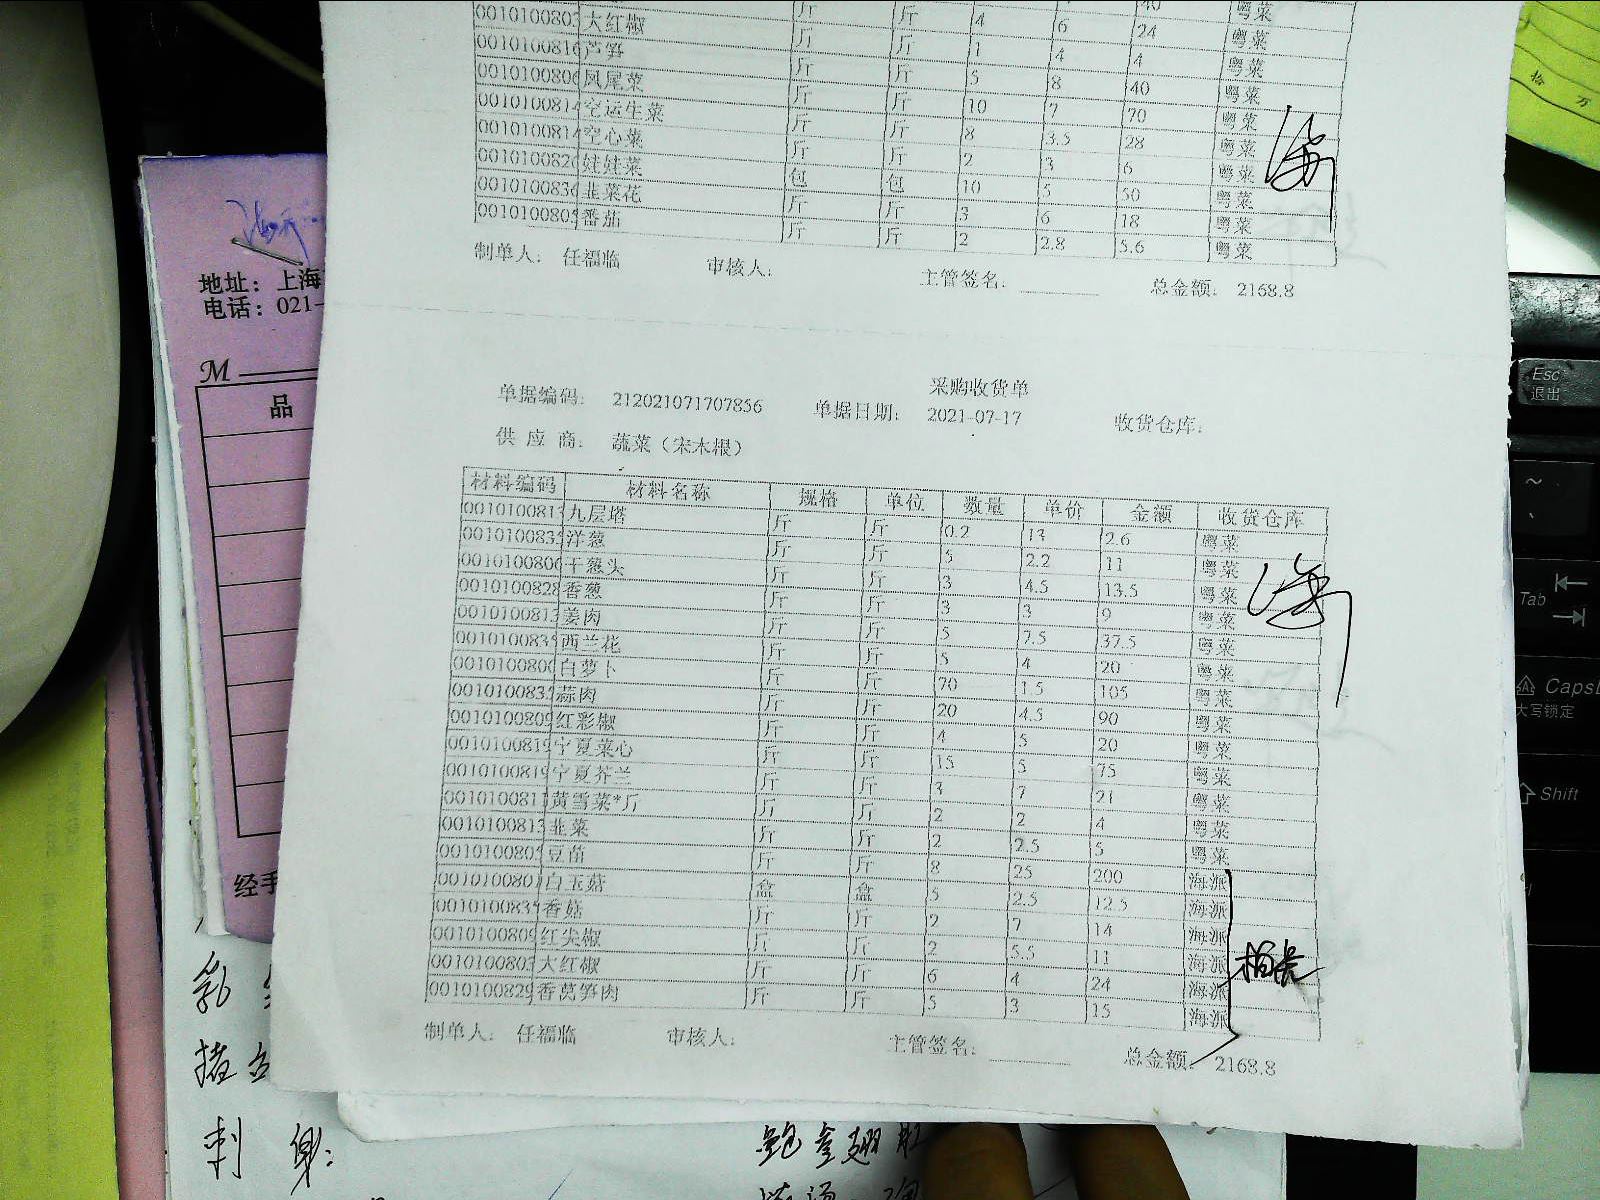 粤菜
0010100803 大红椒 斤 斤 4 6 24 粤菜
0010100816 芦笋 斤 斤 1 4 4 粤菜
0010100806 凤尾菜 斤 斤 5 8 40 粤菜
0010100814 空运生菜 斤 斤 10 7 70 粤菜
0010100814 空心菜 斤 斤 8 3.5 28 粤菜
0010100820 娃娃菜 斤 斤 2 3 6 粤菜
0010100836 韭菜花 包 包 10 5 50 粤菜
0010100805 番茄 斤 斤 3 6 18 粤菜
斤 斤 2 2.8 5.6 粤菜
制单人： 任福临 审核人： 主管签名： 总金额： 2168.8
采购收货单
单据编码： 212021071707856 单据日期： 2021-07-17 收货仓库：
供 应 商： 蔬菜（宋木根）
材料编码 材料名称 规格 单位 数量 单价 金额 收货仓库
0010100813 九层塔 斤 斤 0.2 13 2.6 粤菜
0010100835 洋葱 斤 斤 5 2.2 11 粤菜
0010100806 干葱头 斤 斤 3 4.5 13.5 粤菜
0010100828 香葱 斤 斤 3 3 9 粤菜
0010100813 姜肉 斤 斤 5 7.5 37.5 粤菜
0010100835 西兰花 斤 斤 5 4 20 粤菜
0010100806 白萝卜 斤 斤 70 1.5 105 粤菜
0010100835 蒜肉 斤 斤 20 4.5 90 粤菜
0010100809 红彩椒 斤 斤 4 5 20 粤菜
0010100819 宁夏菜心 斤 斤 15 5 75 粤菜
0010100819 宁夏芥兰 斤 斤 3 7 21 粤菜
0010100811 黄雪菜*斤 斤 斤 2 2 4 粤菜
0010100813 韭菜 斤 斤 2 2.5 5 粤菜
0010100805 豆苗 斤 斤 8 25 200 海派
0010100801 白玉菇 盒 盒 5 2.5 12.5 海派
0010100835 香菇 斤 斤 2 7 14 海派
0010100809 红尖椒 斤 斤 2 5.5 11 海派
0010100803 大红椒 斤 斤 6 4 24 海派
0010100829 香莴笋肉 斤 斤 5 3 15 海派
制单人： 任福临 审核人： 主管签名： 总金额： 2168.8
地址：上海
电话：021-
M
品
经手
乳
刺 身：
Esc
退出
~
Tab
Caps
大写锁定
Shift